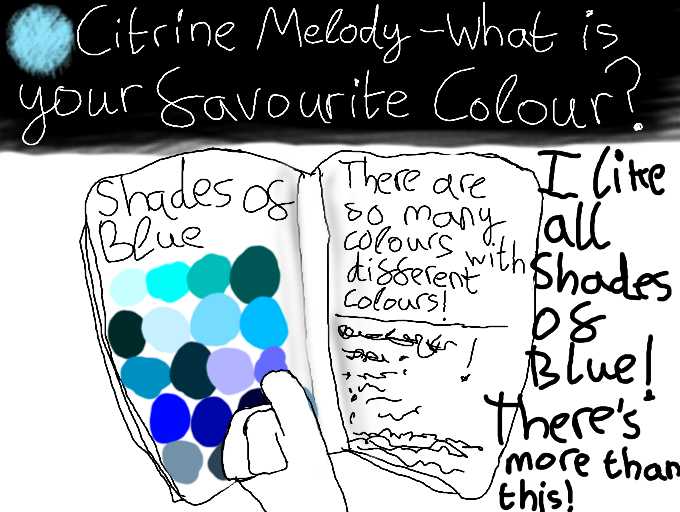 Citrine Melody - What is
your favourite Colour?
Shades of
Blue
There are
so many
colours with
different
colours!
I like
all
Shades
of
Blue!
There's
more than
this!